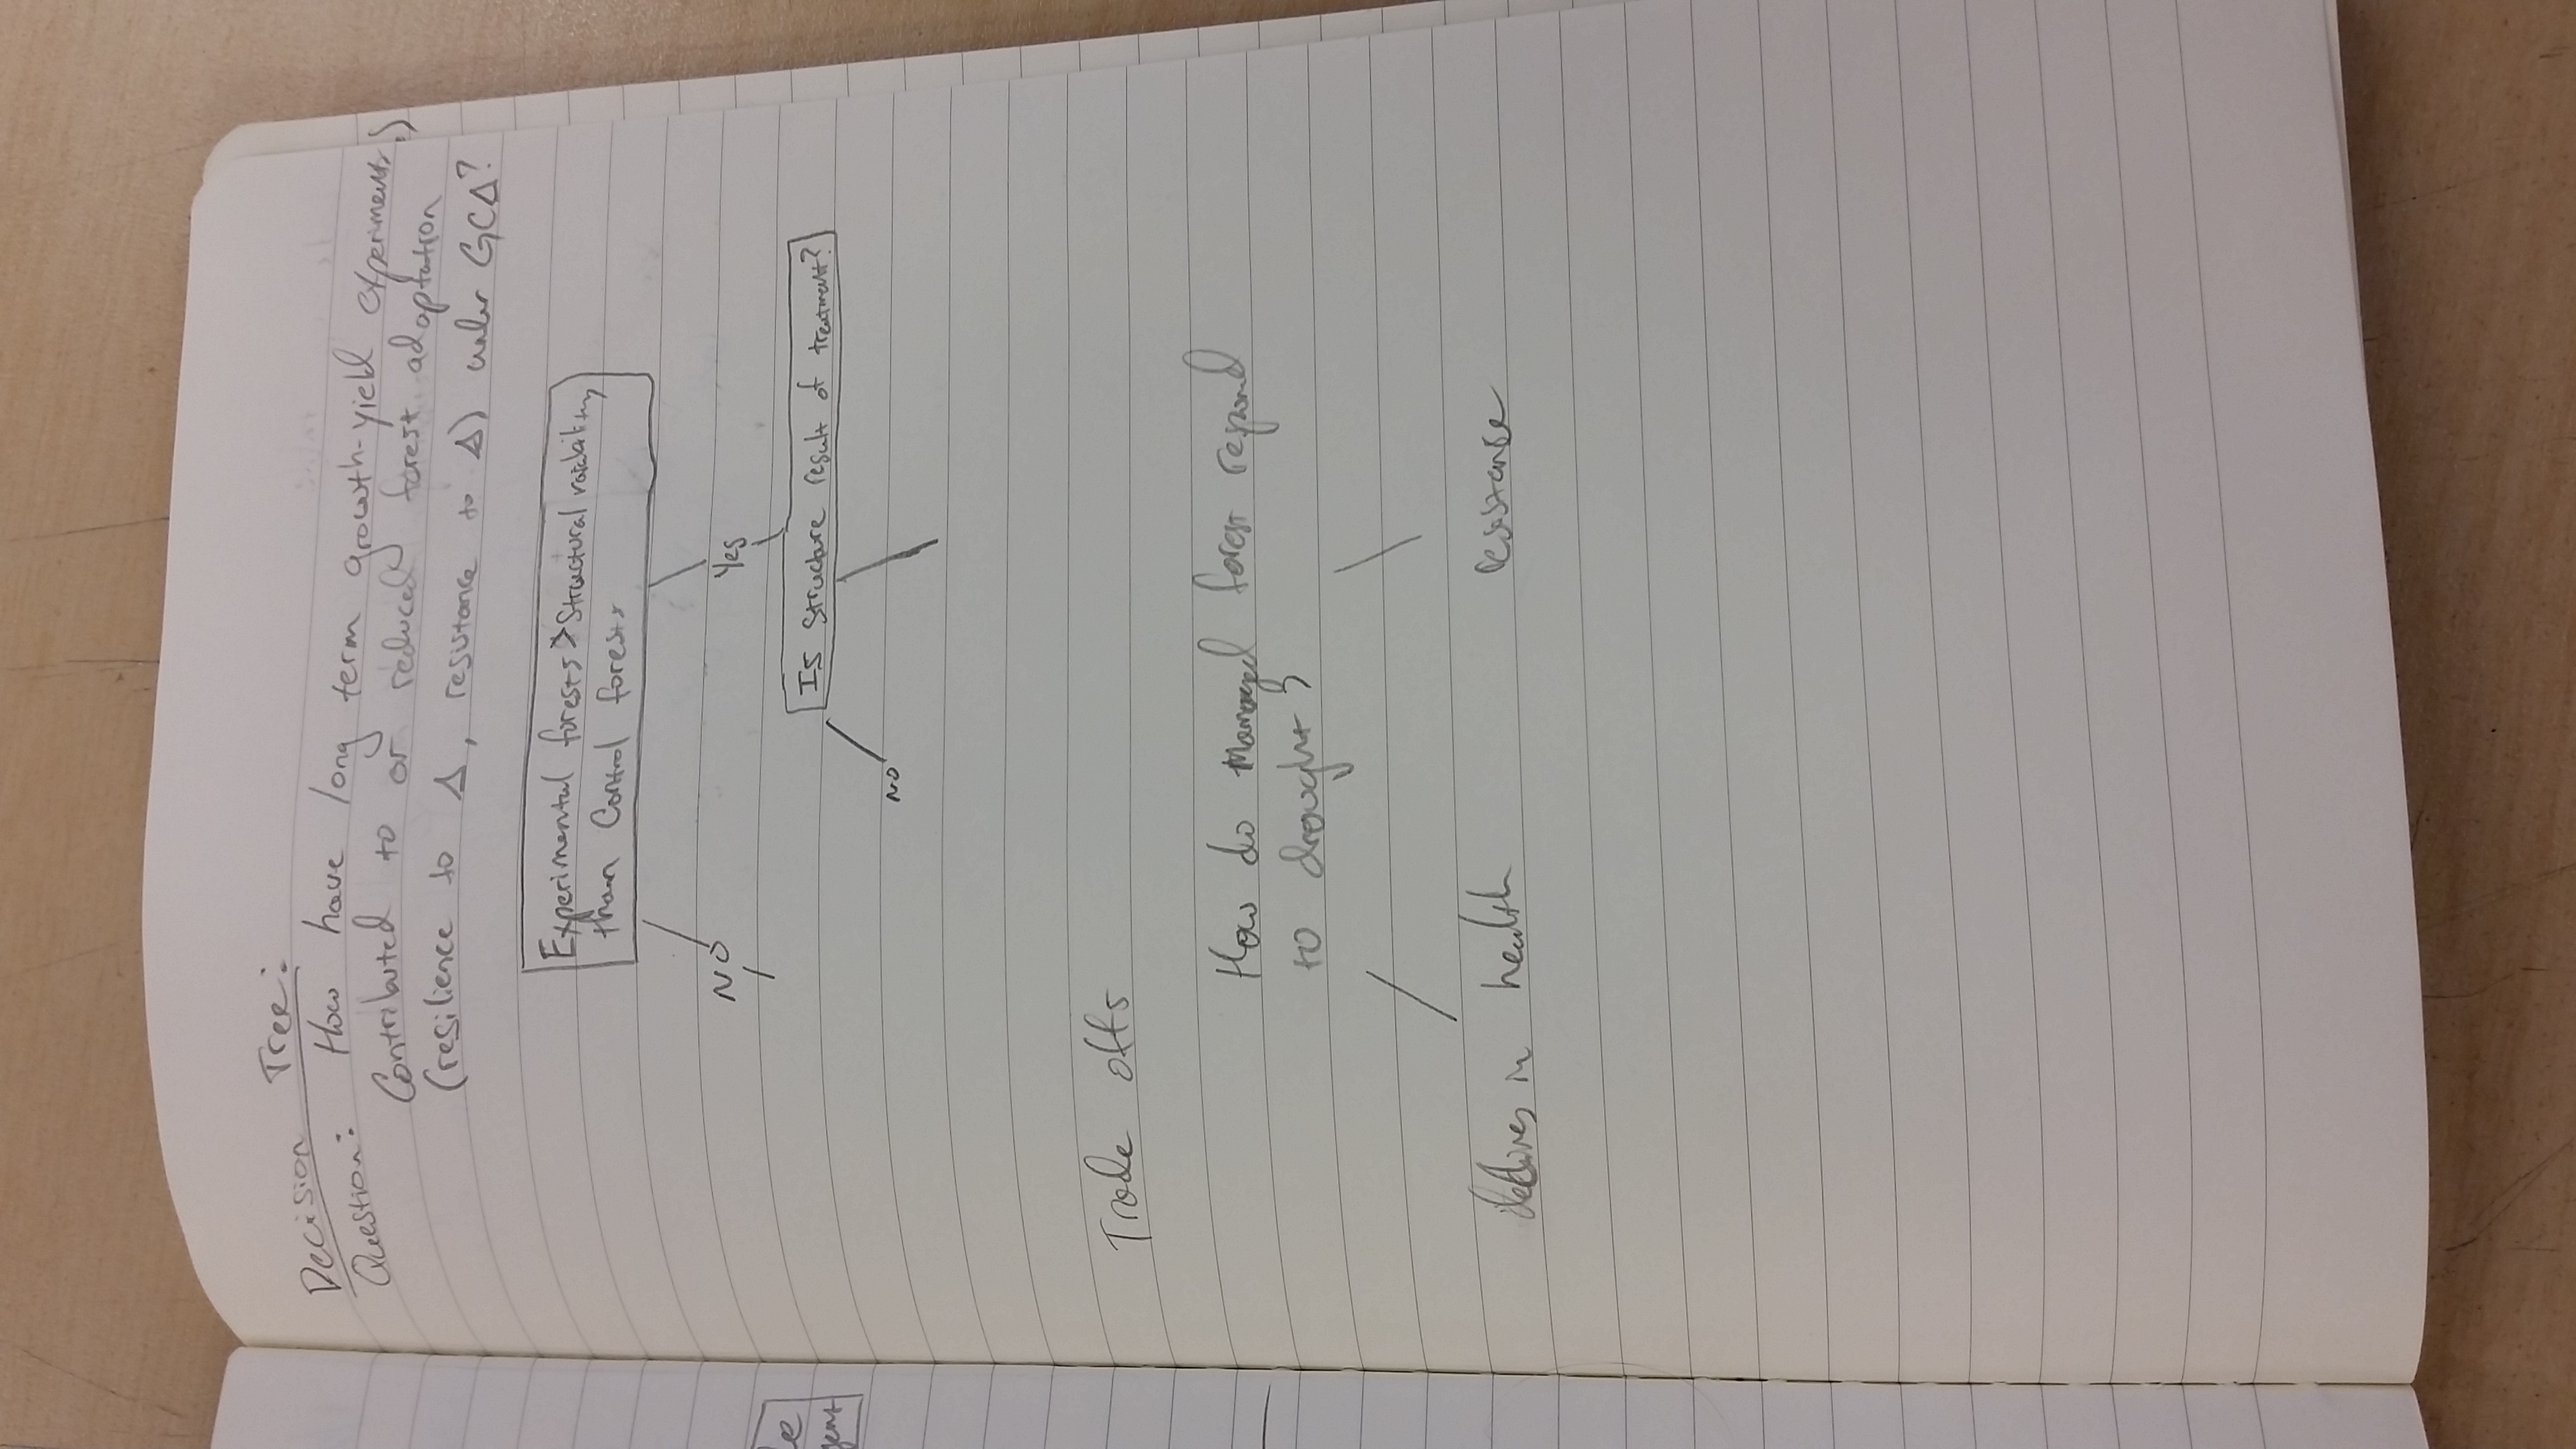 Decision Tree:
Question: How have long term growth-yield experiments
Contributed to or reduced forest adaptation
(resilience to Δ, resistance to Δ) under GCΔ?
Experimental forests > Structural variability
than Control forests
NO
Yes
Is Structure result of treatment?
NO
Trade offs
How do Managed forest respond
to drought?
declines in health
resistance